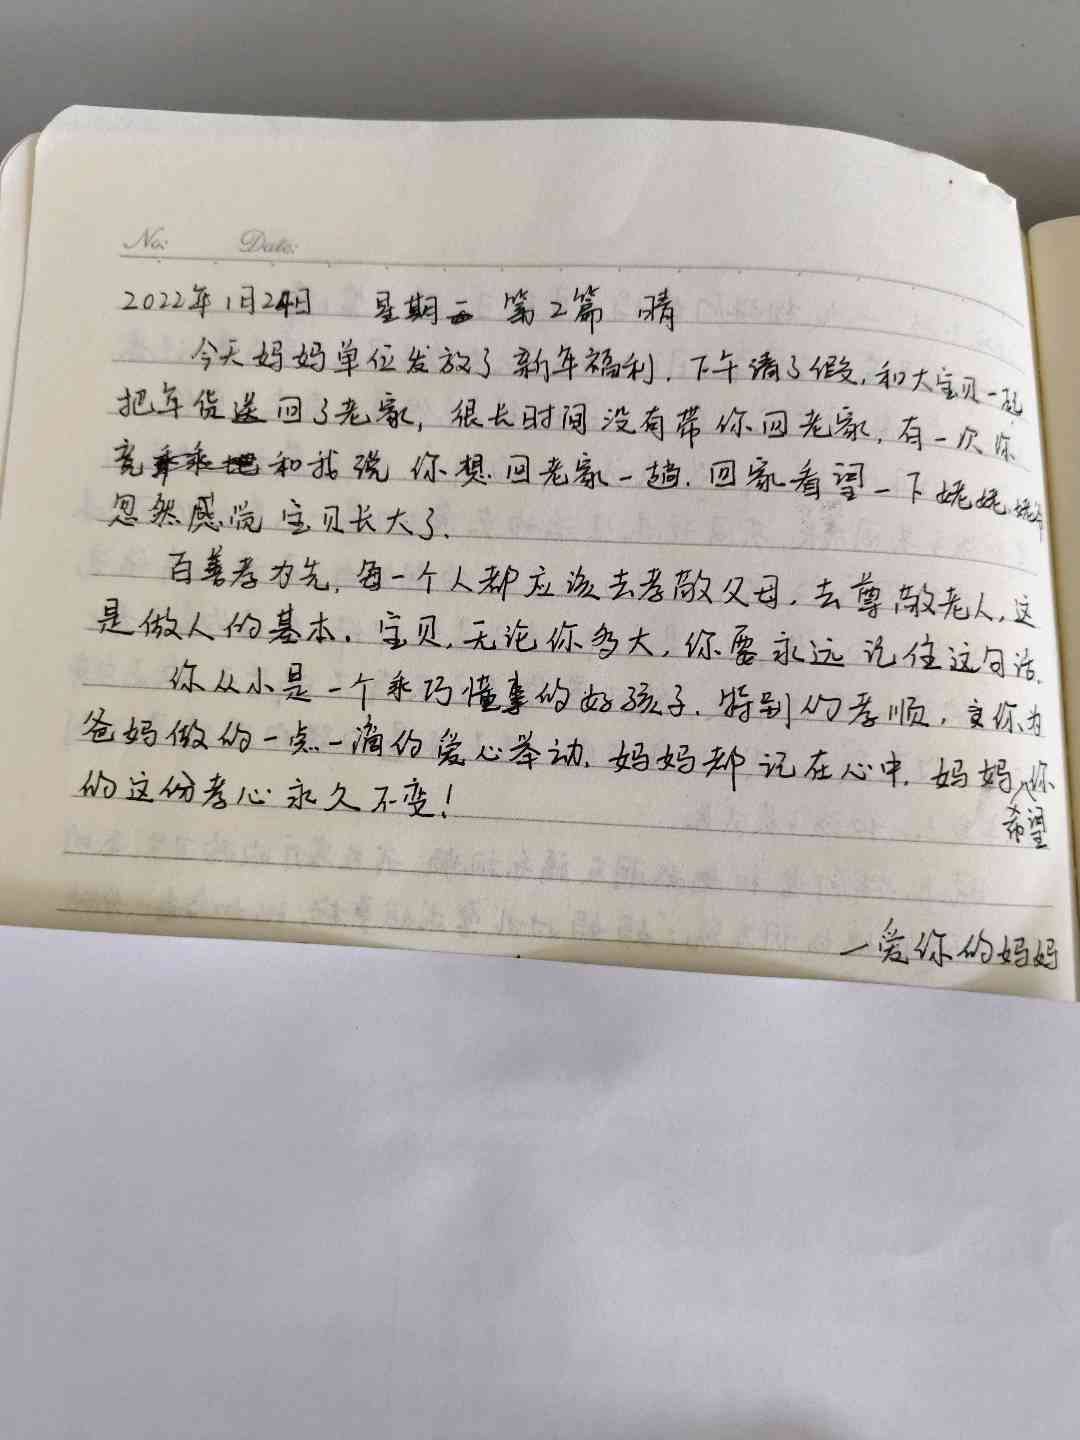 No:  Date:
2022年1月24日 星期一 第2篇 晴
今天妈妈单位发放了新年福利，下午请了假，和大宝贝一起
把年货送回了老家，很长时间没有带你回老家，有一次你
竟和我说你想回老家一趟，回家看望一下姥姥，
忽然感觉宝贝长大了。
百善孝为先，每一个人都应该去孝敬父母，去尊敬老人，这
是做人的基本，宝贝，无论你多大，你要永远记住这句话。
你从小是一个乖巧懂事的好孩子，特别的孝顺，你为
爸妈做的一点一滴的爱心举动，妈妈都记在心中，妈妈希望你
的这份孝心永久不变！
—爱你的妈妈